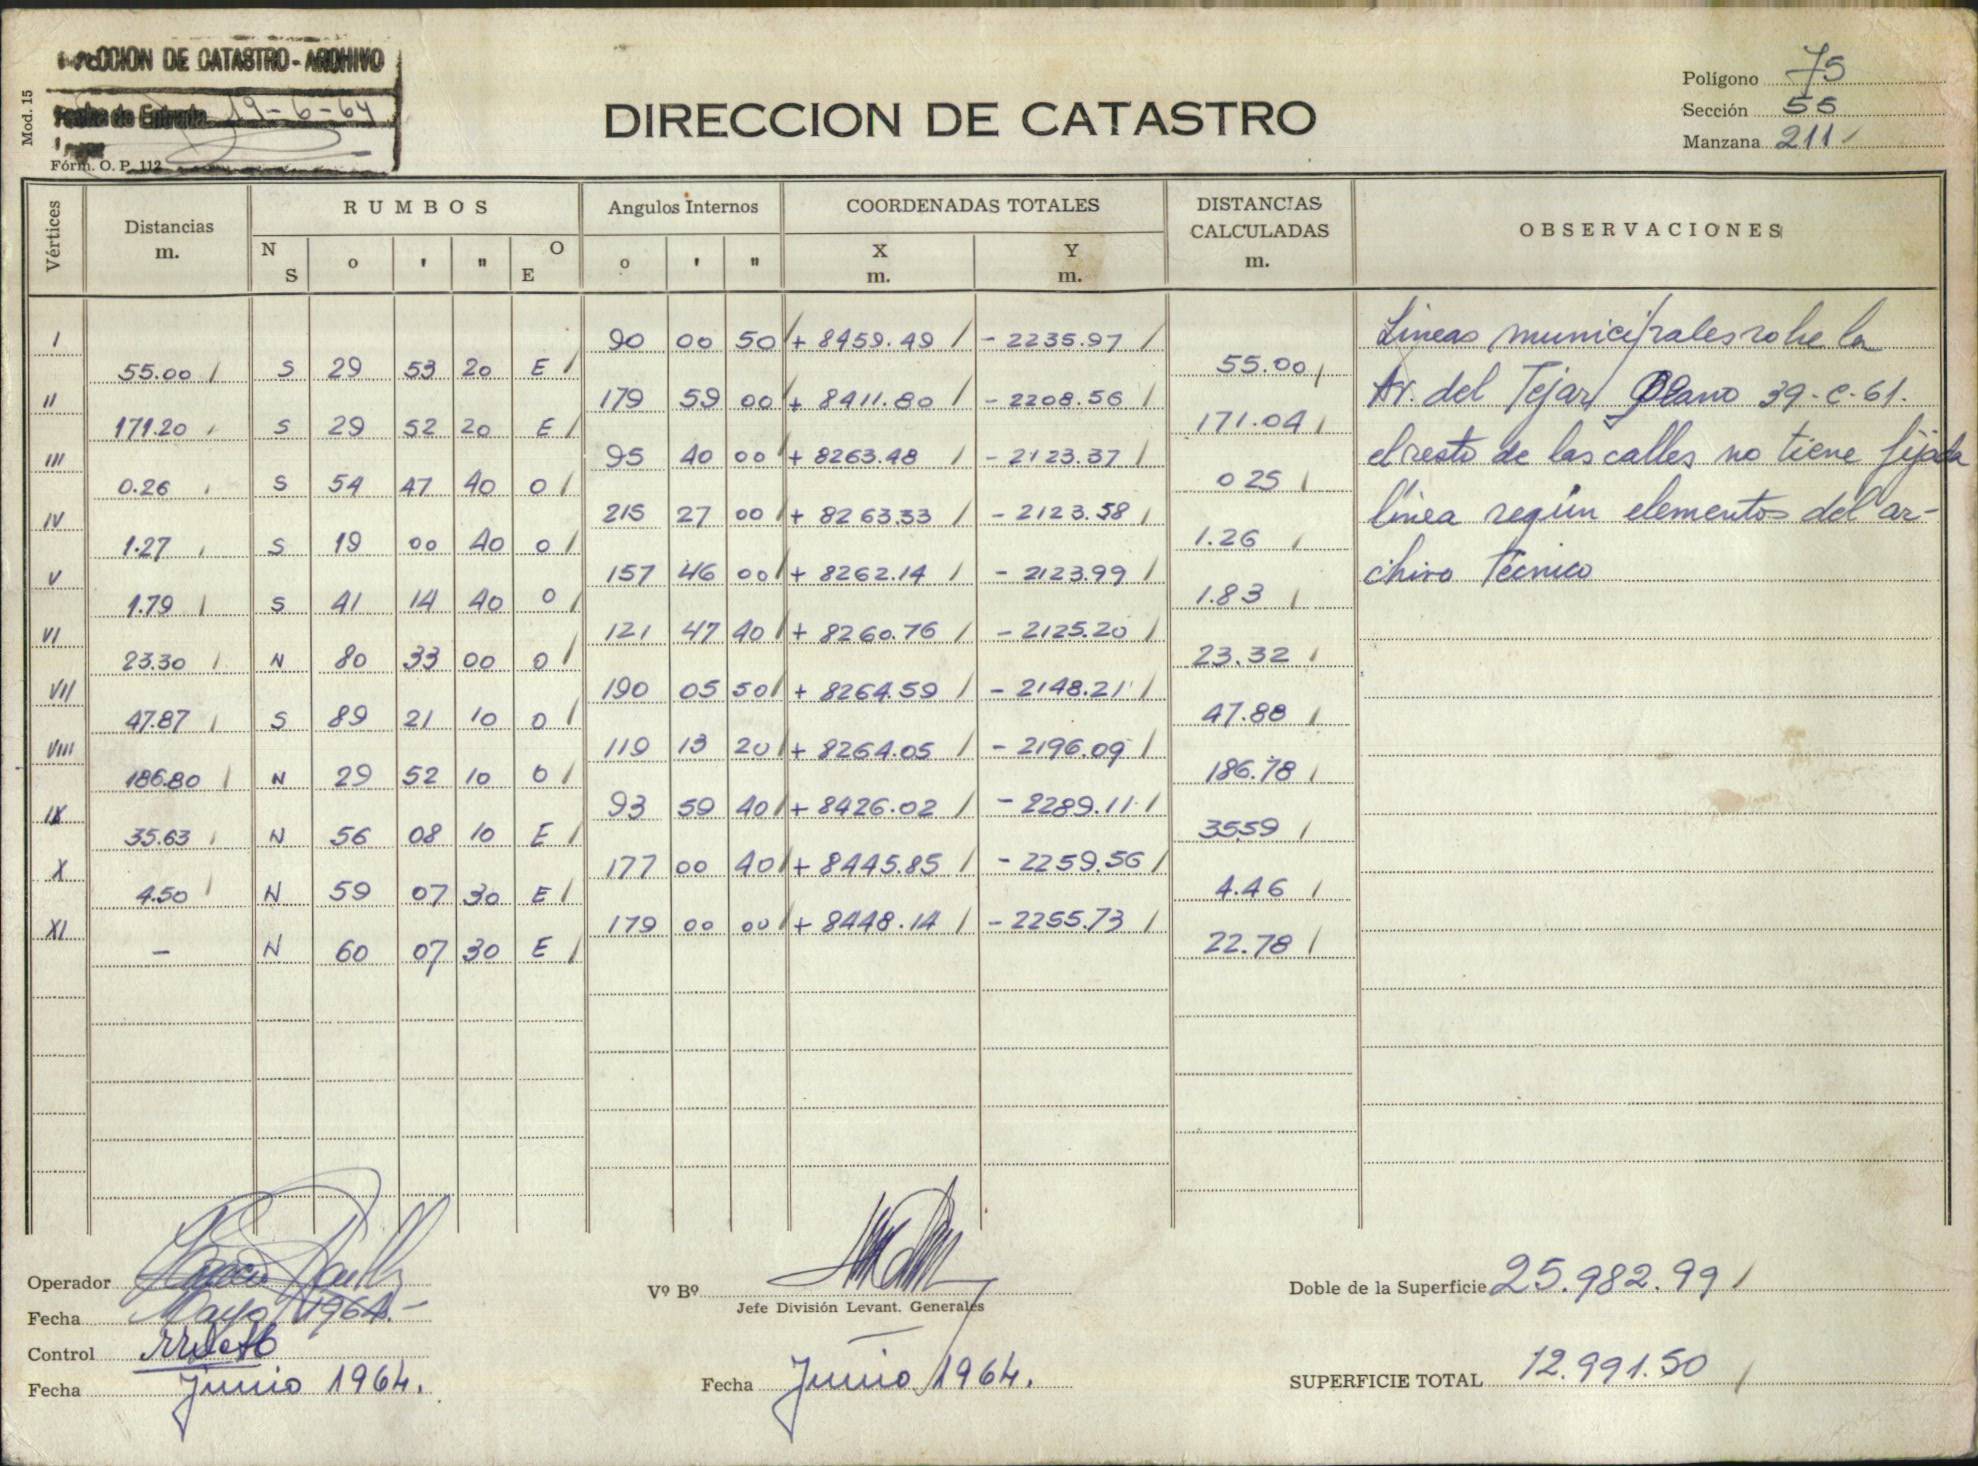 DIRECCION DE CATASTRO - ARCHIVO
Fecha de Entrada 19-6-64
Mod. 15
Fórm. O. P. 112
DIRECCION DE CATASTRO
Polígono 75
Sección 55
Manzana 211
Vértices Distancias m. RUMBOS Angulos Internos COORDENADAS TOTALES DISTANCIAS CALCULADAS m. OBSERVACIONES
N S o ' " O E o ' " X m. Y m.
I 90 00 50 + 8459.49 - 2235.97
55.00 S 29 53 20 E 55.00
II 179 59 00 + 8411.80 - 2208.56
171.20 S 29 52 20 E 171.04
III 95 40 00 + 8263.48 - 2123.37
0.26 S 54 47 40 O 0 25
IV 215 27 00 + 8263.33 - 2123.58
1.27 S 19 00 40 O 1.26
V 157 46 00 + 8262.14 - 2123.99
1.79 S 41 14 40 O 1.83
VI 121 47 40 + 8260.76 - 2125.20
23.30 N 80 33 00 O 23.32
VII 190 05 50 + 8264.59 - 2148.21
47.87 S 89 21 10 O 47.88
VIII 119 13 20 + 8264.05 - 2196.09
186.80 N 29 52 10 O 186.78
IX 93 59 40 + 8426.02 - 2289.11
35.63 N 56 08 10 E 35.59
X 177 00 40 + 8445.85 - 2259.56
4.50 N 59 07 30 E 4.46
XI 179 00 00 + 8448.14 - 2255.73
— N 60 07 30 E 22.78
Lineas municipales sobre la
Av. del Tejar Plano 39-C-61.
el resto de las calles no tiene fijada
línea según elementos del ar-
chivo Técnico
Operador
Fecha Mayo 1964.-
Control
Fecha Junio 1964.
Vº Bº
Jefe División Levant. Generales
Fecha Junio 1964.
Doble de la Superficie 25.982.99
SUPERFICIE TOTAL 12.991.50